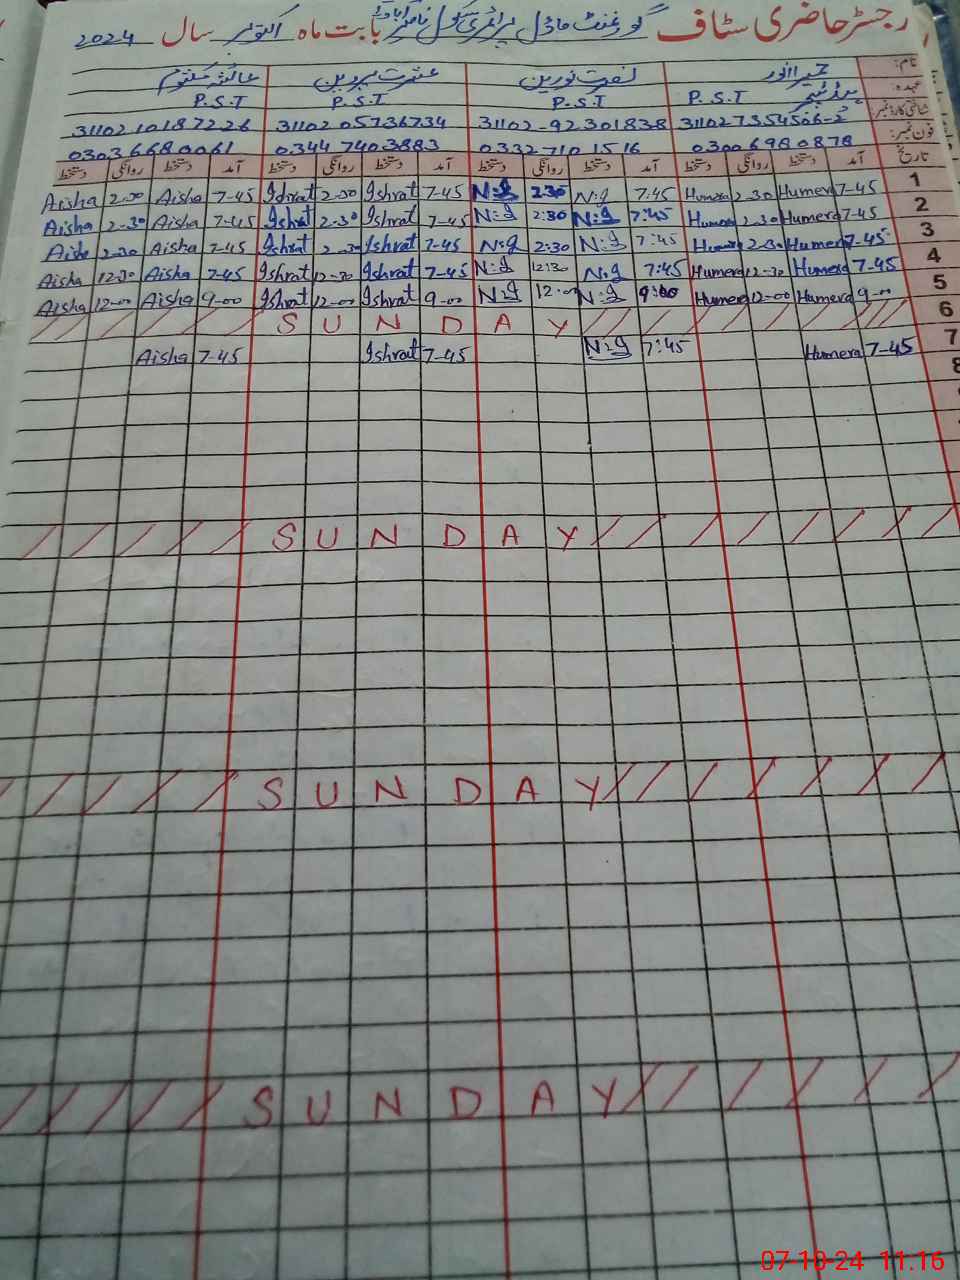 رجسٹر حاضری سٹاف گورنمنٹ ماڈل پرائمری سکول بابت ماہ اکتوبر سال 2024
نام: حمیرا انور نصرت نورین عشرت پروین عائشہ کلثوم
عہدہ: ہیڈ ٹیچر P.S.T P.S.T P.S.T P.S.T
شناختی کارڈ نمبر 311027354506-2 31102-92301838 3110205736734 3110210187226
فون نمبر: 03006980878 03327101516 03447403883 03036680061
تاریخ آمد دستخط روانگی دستخط آمد دستخط روانگی دستخط آمد دستخط روانگی دستخط آمد دستخط روانگی دستخط
Aisha 2-30 Aisha 7-45 Ishrat 2-30 Ishrat 7-45 N:J 2:30 N:J 7:45 Humera 2-30 Humera 7-45 1
Aisha 2-30 Aisha 7-45 Ishrat 2-30 Ishrat 7-45 N:J 2:30 N:J 7:45 Humera 2-30 Humera 7-45 2
Aisha 2-30 Aisha 7-45 Ishrat 2-30 Ishrat 7-45 N:J 2:30 N:J 7:45 Humera 2-30 Humera 7-45 3
Aisha 12-30 Aisha 7-45 Ishrat 12-30 Ishrat 7-45 N:J 12:30 N:J 7:45 Humera 12-30 Humera 7-45 4
Aisha 12-00 Aisha 9-00 Ishrat 12-00 Ishrat 9-00 N:J 12:00 N:J 9:00 Humera 12-00 Humera 9-00 5
SUNDAY 6
Aisha 7-45 Ishrat 7-45 N:J 7:45 Humera 7-45 7
8
SUNDAY
SUNDAY
SUNDAY
07-10-24 11.16